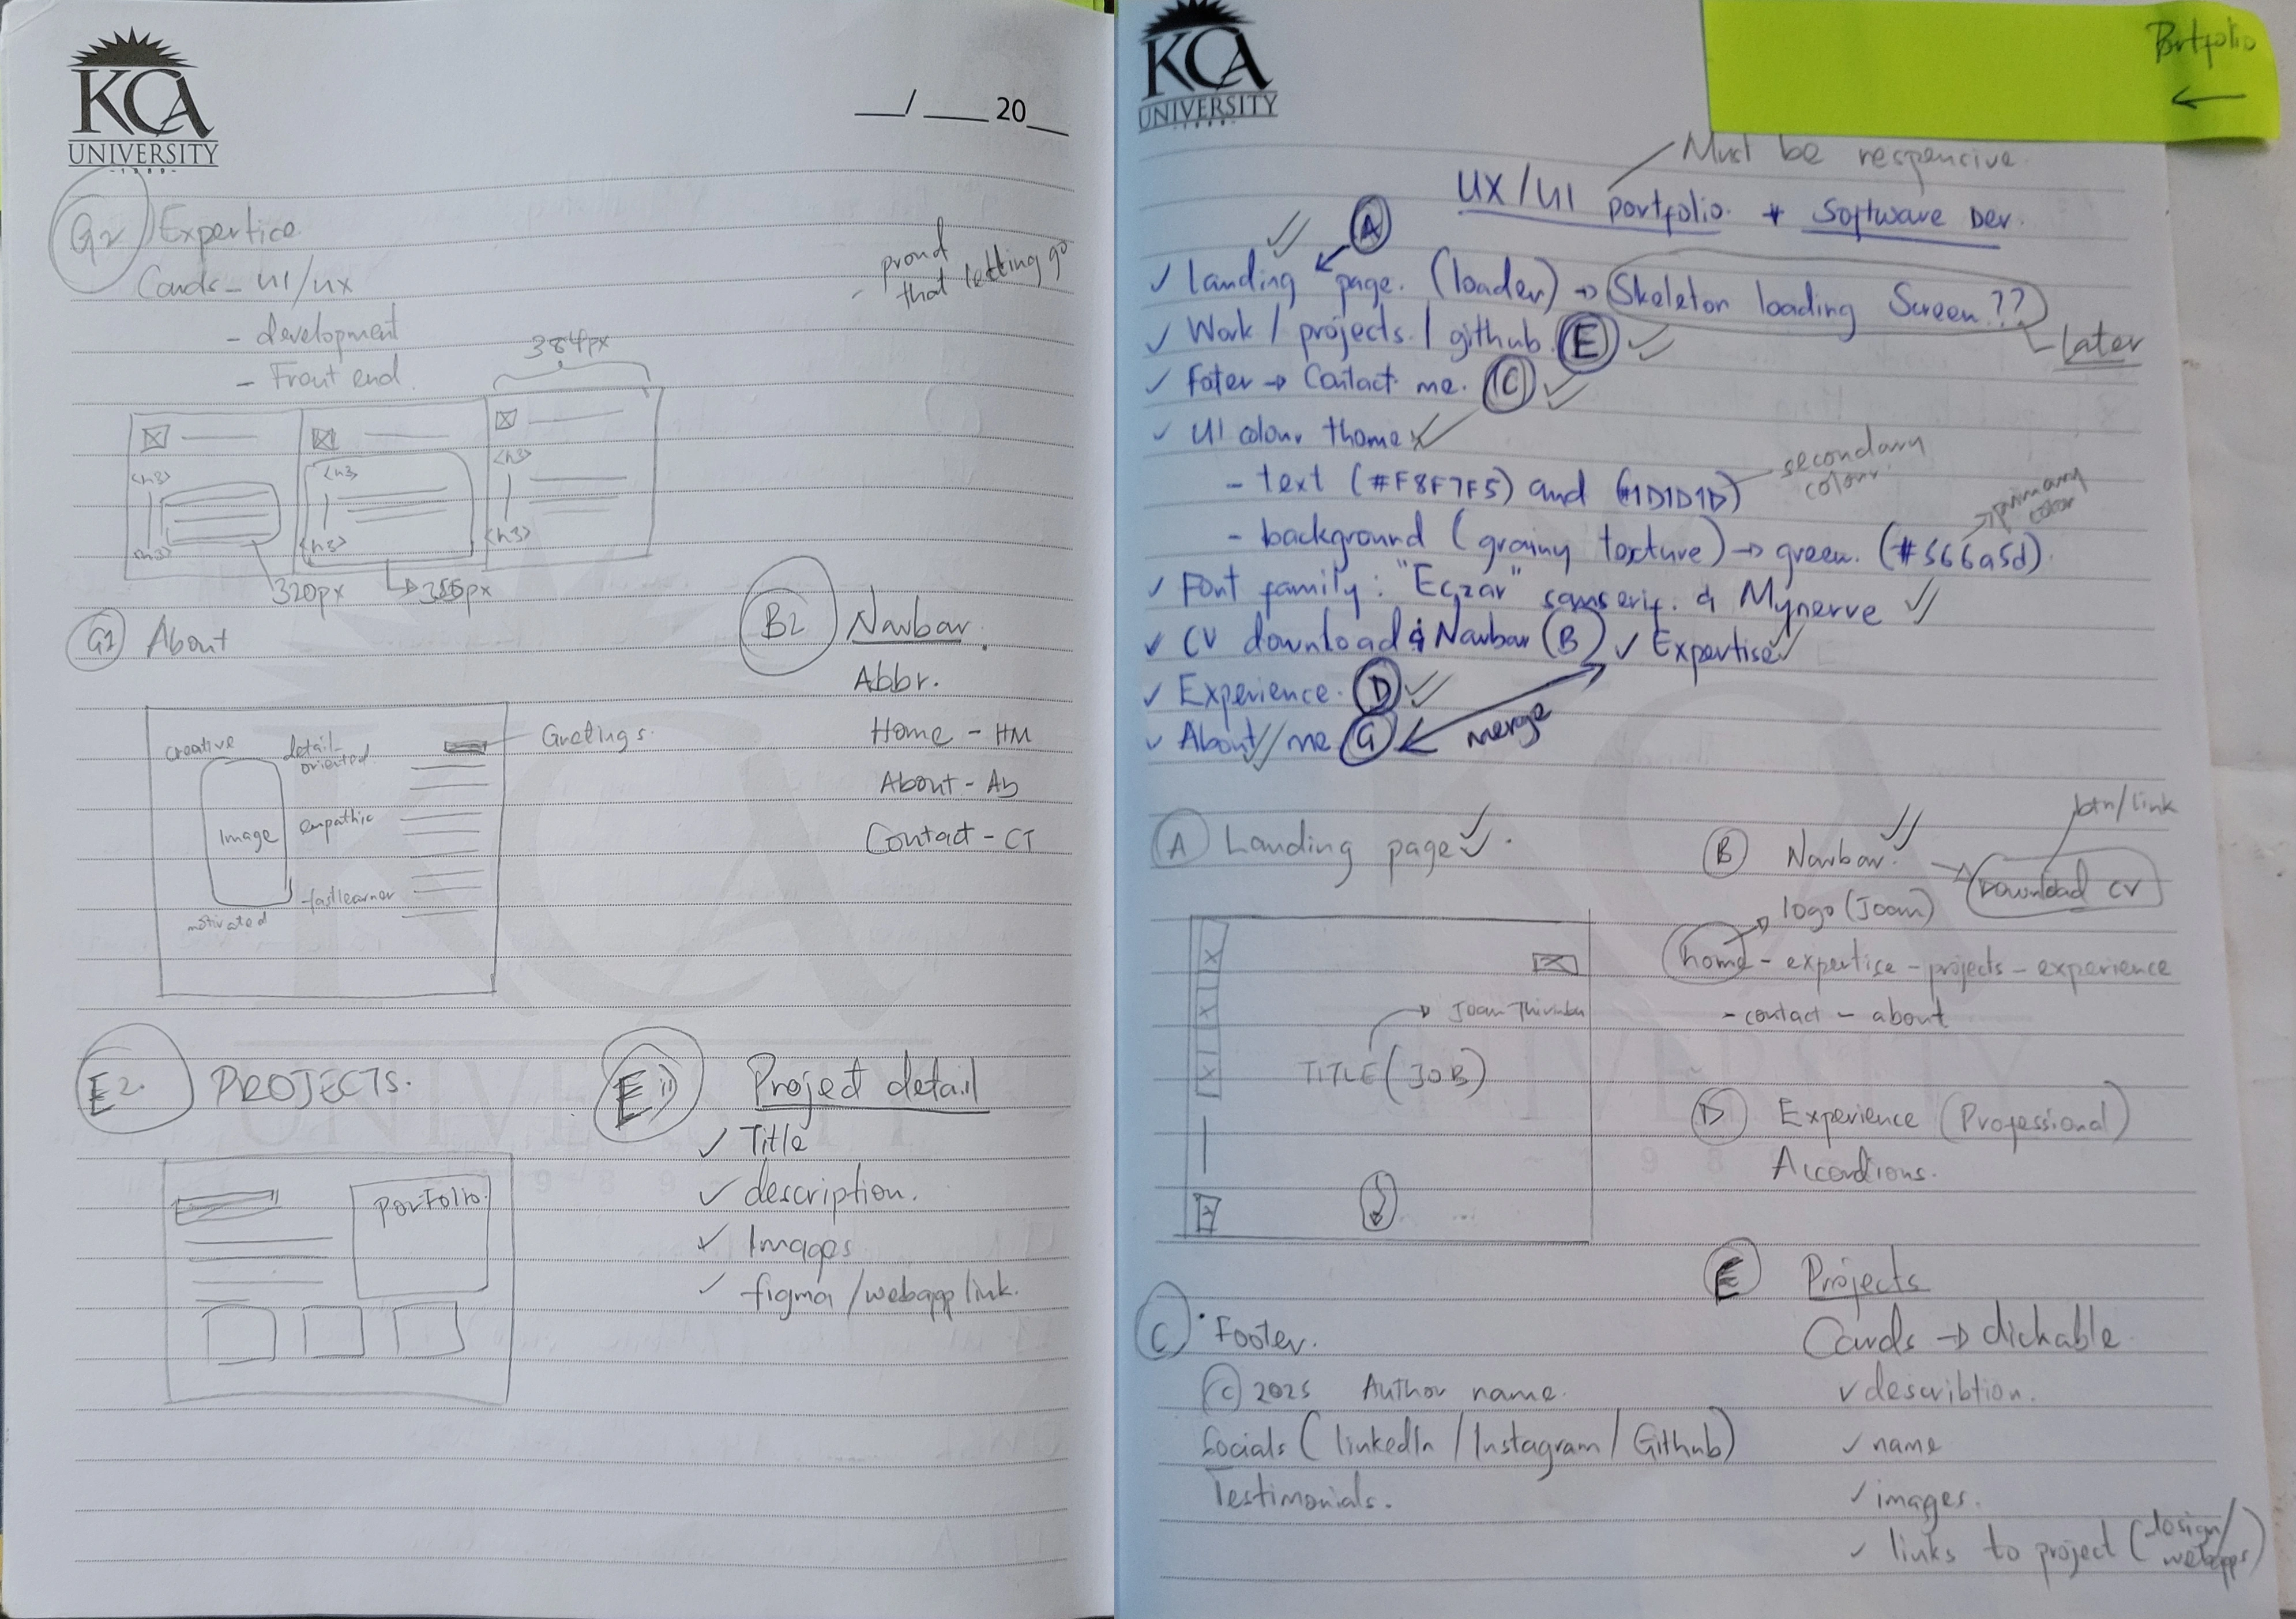 KCA
UNIVERSITY
-1989-
__/____ 20__
G2 Expertice
Cards - UI/UX
- development
- Front end.
- proud
that letting go
384px
<h3>
<h3>
<h3>
<h3>
<h3>
<h3>
320px
G1 About
creative
detail-
oriented
Image
empathic
fastlearner
motivated
Greetings
B2 Navbar.
Abbr.
Home - HM
About - Ab
Contact - CT
E2. PROJECTS.
PORTFOLIO
E1) Project detail
✓ Title
✓ description.
✓ Images
✓ figma/webapp link.
KCA
UNIVERSITY
Portfolio
←
Must be responsive
UX/UI portfolio. + Software Dev.
A
✓ Landing page. (loader) → Skeleton loading Screen??
Later
✓ Work / projects / github. E
✓ Foter → Contact me. C
✓ UI colour theme
- text (#F8F7F5) and (#1D1D1D)
secondary
colour
- background (grainy texture) → green. (#566a5d).
→ primary
color
✓ Font family: "Eczar" sanserif. & Mynerve
✓ CV download & Navbar (B) ✓ Expertise
✓ Experience. D
✓ About me G
merge
A Landing page
Joan
TITLE (JOB)
B Navbar.
Download CV
btn/link
logo (Joan)
home - expertise - projects - experience
- contact - about
D Experience (Professional)
Accordions.
E Projects
Cards → clickable
✓ describtion.
✓ name
✓ images.
✓ links to project (design/
webapps)
C Footer.
© 2025 Author name.
Socials (linkedIn / Instagram / Github)
Testimonials.